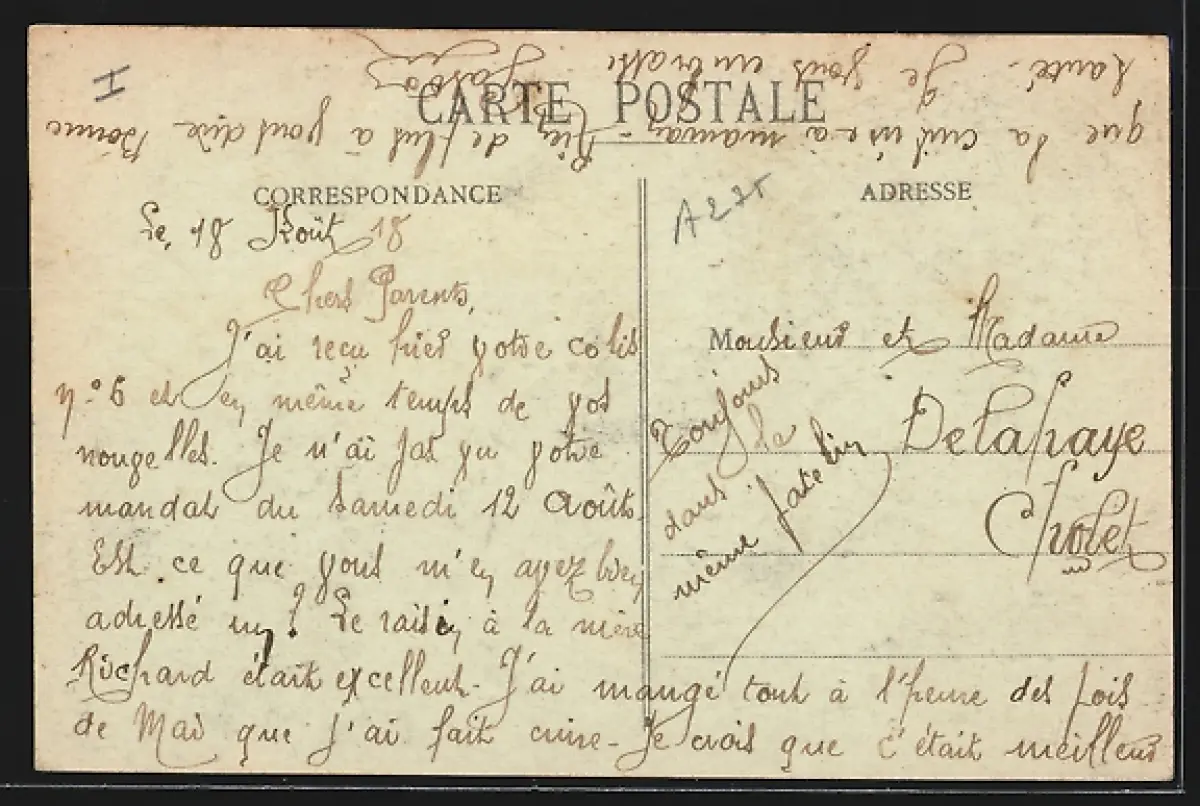 I
CARTE POSTALE
CORRESPONDANCE
ADRESSE
Le 18 Août 18
Chers Parents,
J'ai reçu hier votre colis
n° 6 et en même temps de vos
nouvelles. Je n'ai pas vu votre
mandat du Samedi 12 Août.
Est ce que vous m'en avez bien
adressé un ? Le raisin à la mère
Richard était excellent. J'ai mangé tout à l'heure des pois
de Mai que j'ai fait cuire. Je crois que c'était meilleur
que la cuisine à maman. Rien de plus à vous dire Bonne
Santé. Je vous embrasse
Gaston
Monsieur et Madame
Delahaye
Cholet
Toujours
dans le
même patelin